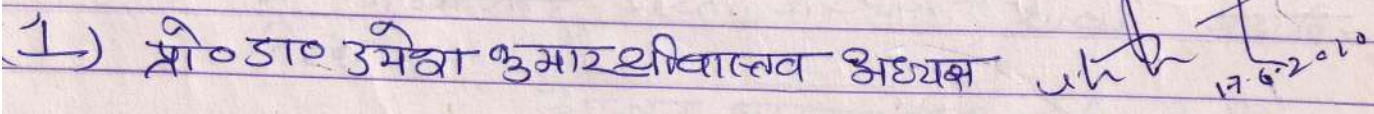 1) प्रो० डा० उमेश कुमार श्रीवास्तव अध्यक्ष 17.6.2010